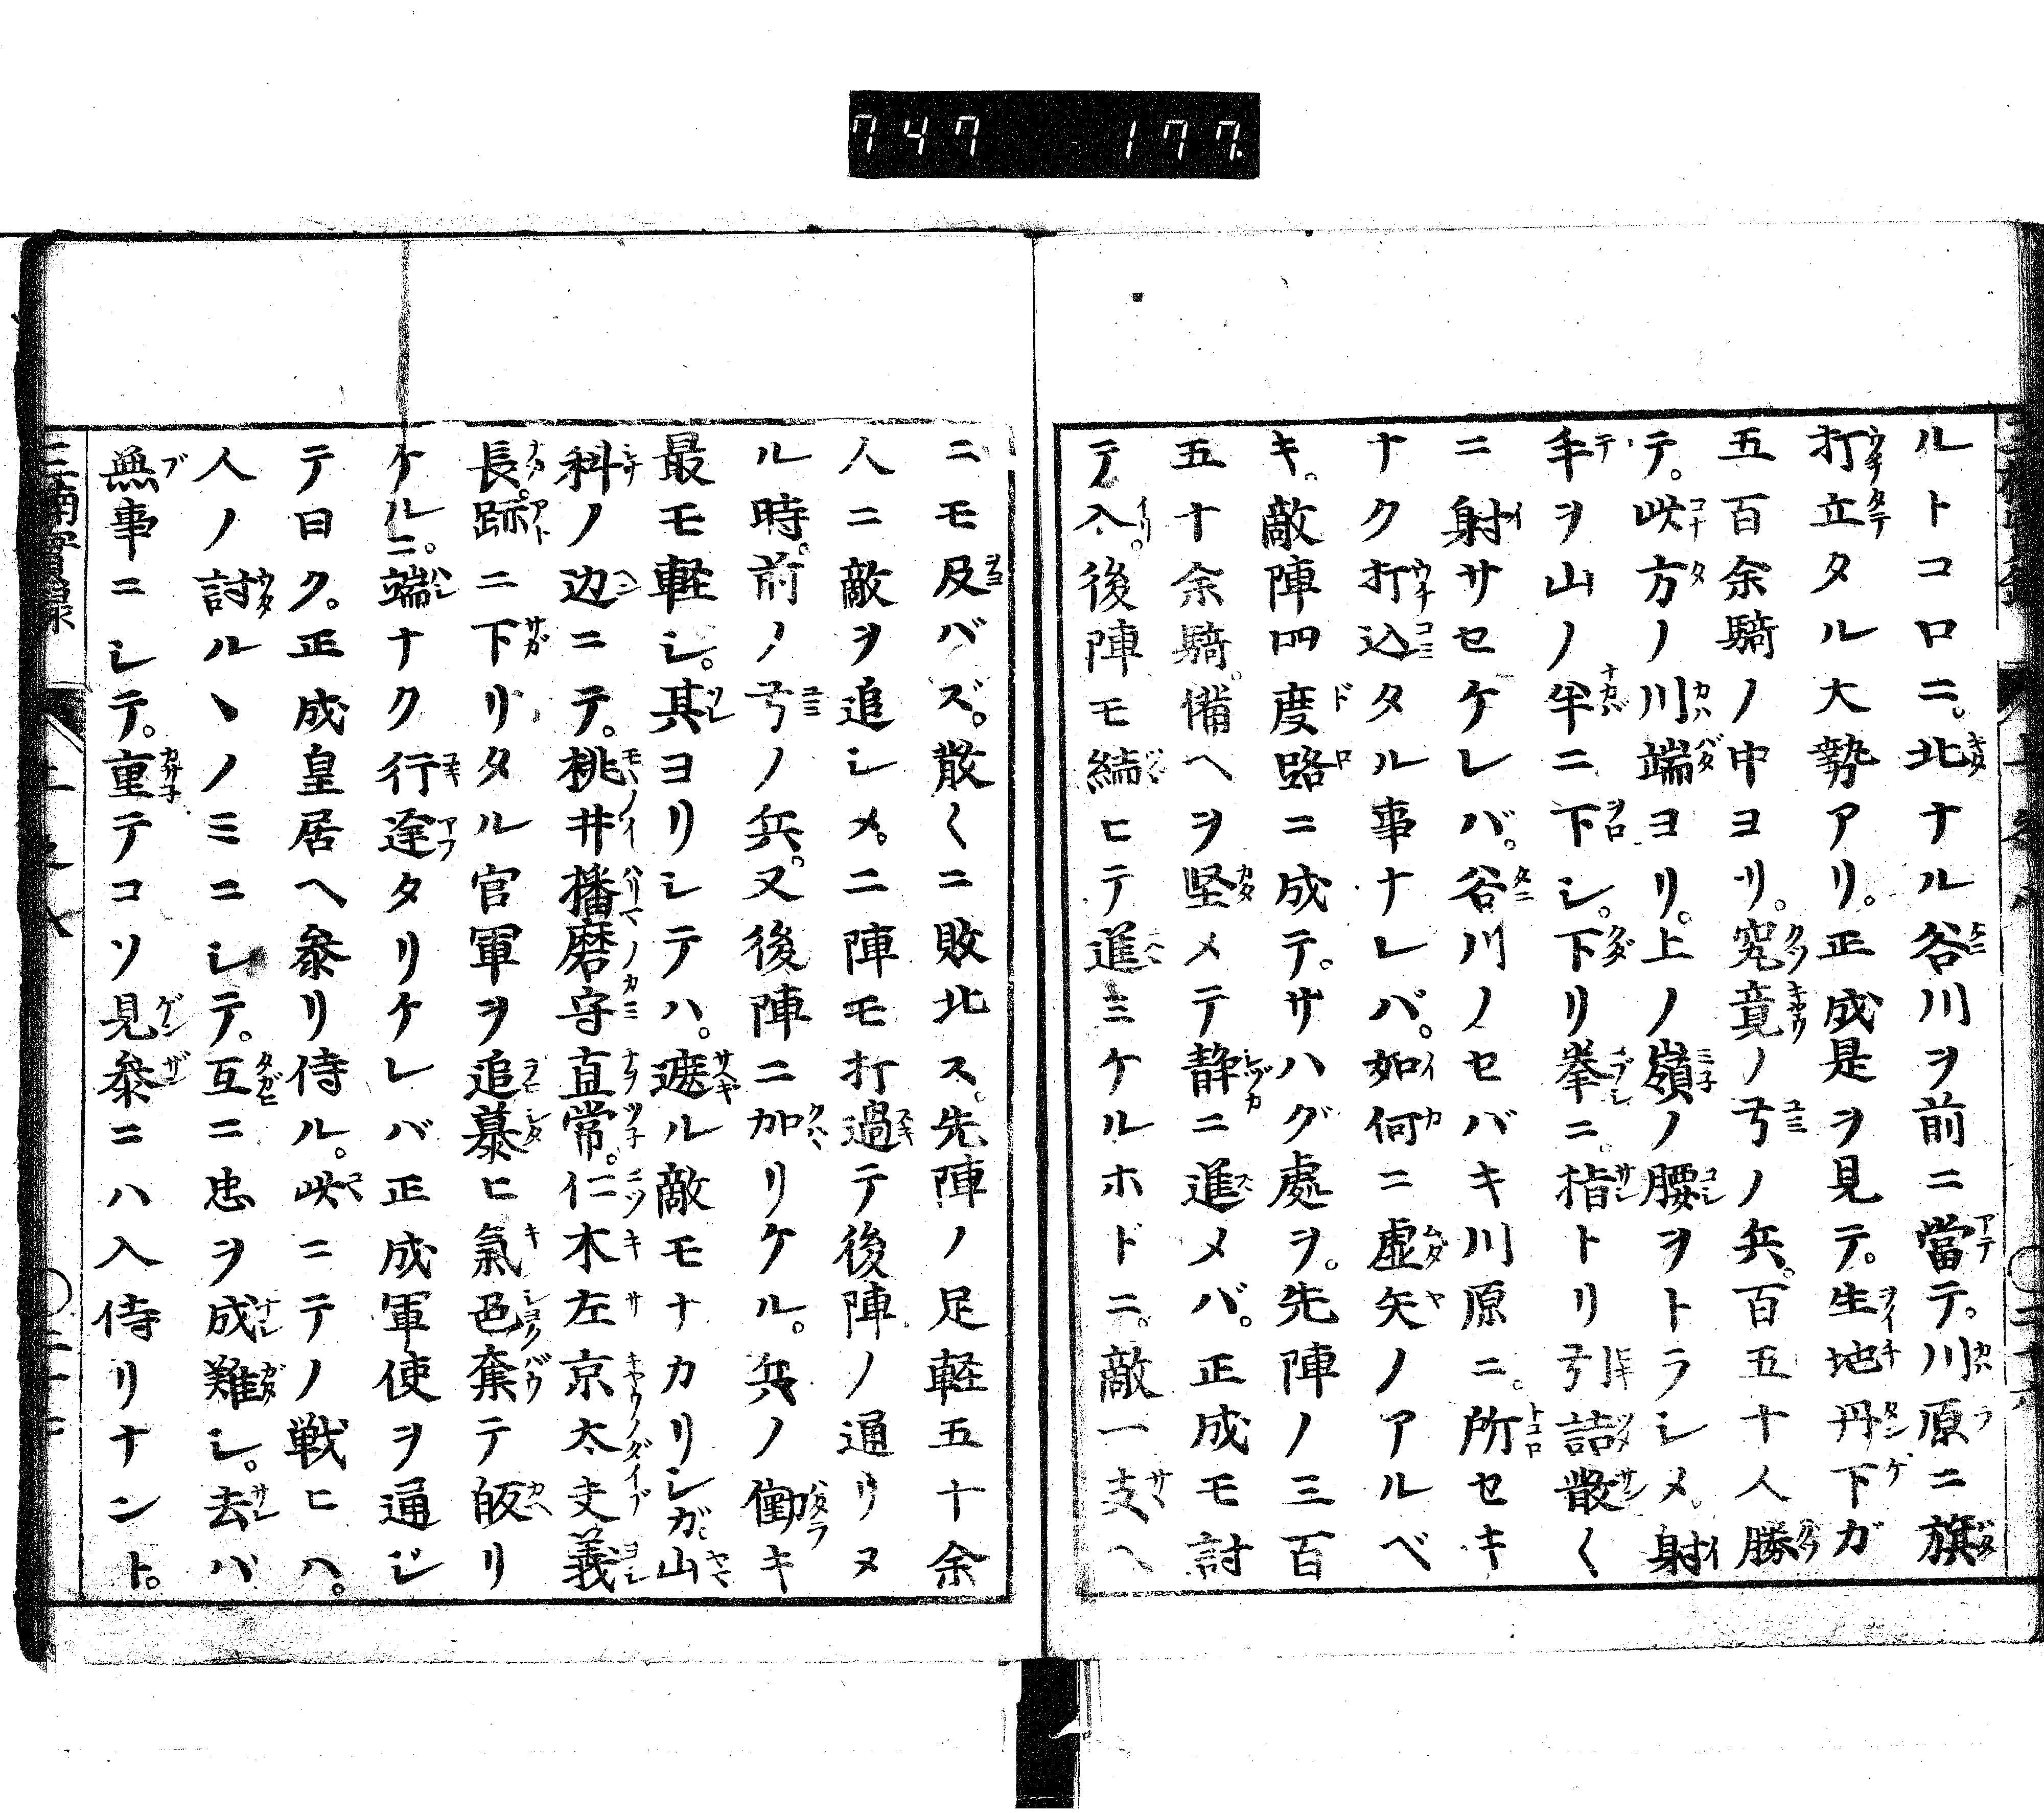 747 177.
ルトコロニ。北ナル谷川ヲ前ニ當テ。川原ニ旗
打立タル大勢アリ。正成是ヲ見テ。生地丹下ガ
五百余騎ノ中ヨリ。究竟ノ弓ノ兵。百五十人勝
テ。此方ノ川端ヨリ。上ノ嶺ノ腰ヲトラシメ。射
手ヲ山ノ半ニ下シ。下リ拳ニ。指トリ引詰散〱
ニ射サセケレバ。谷川ノセバキ川原ニ。所セキ
ナク打込タル事ナレバ。如何ニ虚矢ノアルベ
キ。敵陣四度路ニ成テ。サハグ處ヲ。先陣ノ三百
五十余騎。備ヘヲ堅メテ静ニ進メバ。正成モ討
テ入。後陣モ續ヒテ進ミケルホドニ。敵一支ヘ
ニモ及バズ。散〱ニ敗北ス。先陣ノ足軽五十余
人ニ敵ヲ追シメ。二陣モ打過テ後陣ノ通リヌ
ル時。前ノ弓ノ兵。又後陣ニ加リケル。兵ノ働キ
最モ軽シ。其ヨリシテハ。遮ル敵モナカリシガ。山
科ノ辺ニテ。桃井播磨守直常。仁木左京太夫義
長。跡ニ下リタル官軍ヲ追慕ヒ氣色奪テ皈リ
ケル。ニ端ナク行逢タリケレバ正成軍使ヲ通ジ
テ曰ク。正成皇居ヘ参リ侍ル。此ニテノ戦ヒハ。
人ノ討ルヽノミニシテ。互ニ忠ヲ成難シ。去バ
無事ニシテ。重テコソ見参ニハ入侍リナント。